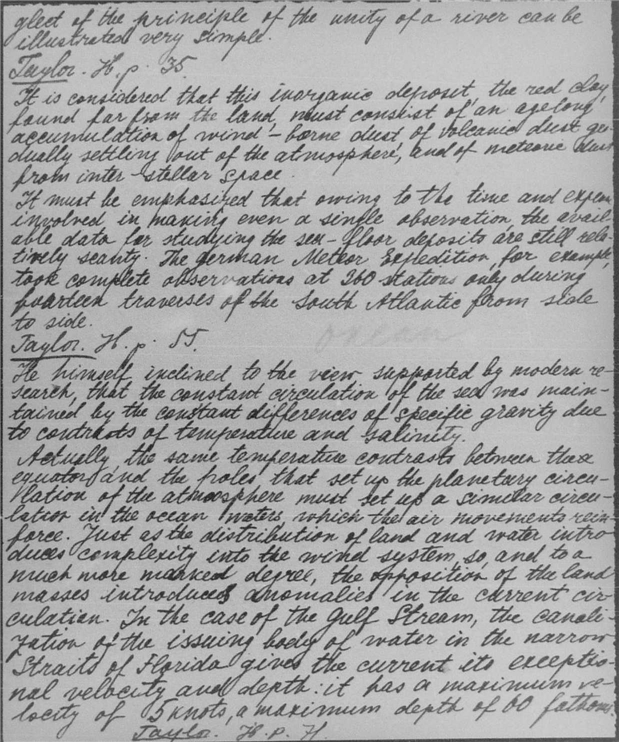 glect of the principle of the unity of a river can be
illustrated very simple.
Taylor. H. p. 35.
It is considered that this inorganic deposit, the red clay,
found far from the land must consist of an agelong
accumulation of wind-borne dust of volcanic dust gra-
dually settling out of the atmosphere, and of meteoric dust
from inter-stellar space.
It must be emphasized that owing to the time and expen
involved in making even a single observation, the avail-
able data for studying the sea-floor deposits are still rela-
tively scanty. The german Meteor Expedition, for example,
took complete observations at 360 stations only during
fourteen traverses of the South Atlantic from side
to side.
Taylor. H. p. 55.
He himself inclined to the view, supported by modern re-
search, that the constant circulation of the sea was main-
tained by the constant differences of specific gravity due
to contrasts of temperature and salinity.
Actually the same temperature contrasts between the
equator and the poles, that set up the planetary circu-
lation of the atmosphere must set up a similar circu-
lation in the ocean waters, which the air movements rein-
force. Just as the distribution of land and water intro
duces complexity into the wind system, so, and to a
much more marked degree, the opposition of the land
masses introduces anomalies in the current cir-
culation. In the case of the Gulf Stream, the canali-
zation of the issuing body of water in the narrow
Straits of Florida gives the current its exceptio-
nal velocity and depth: it has a maximum ve-
locity of 5 knots, a maximum depth of 60 fathoms.
Taylor. H. p.